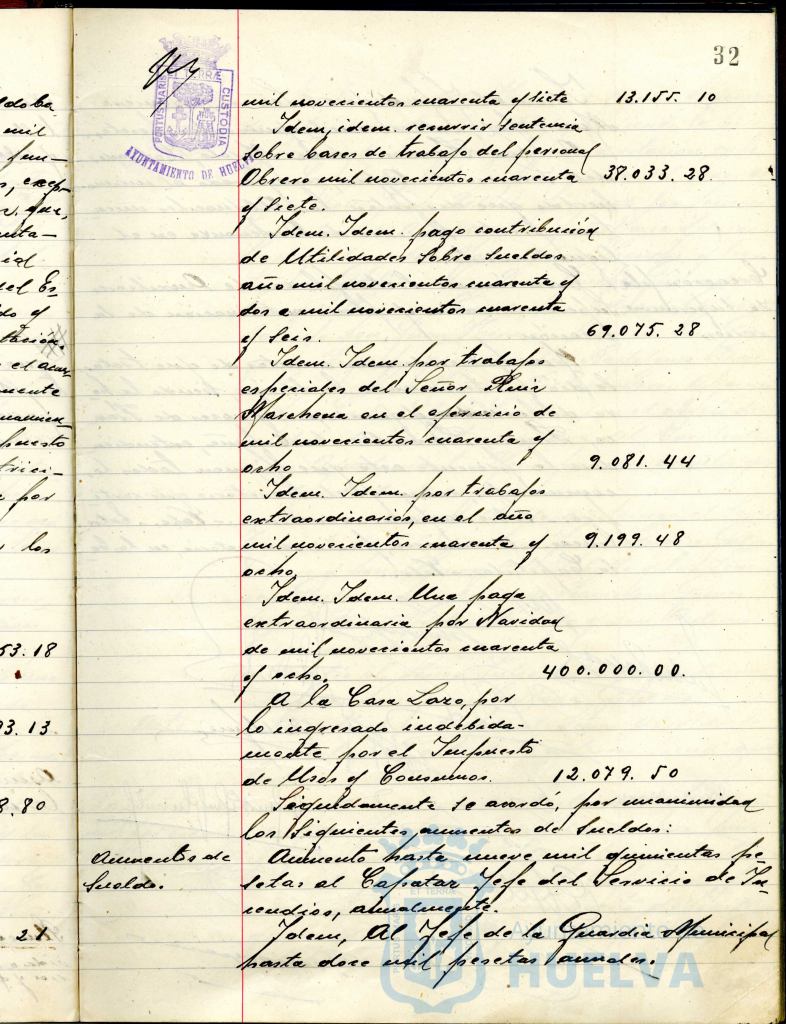 32
PORTUS MARIS ET TERRÆ CUSTODIA
AYUNTAMIENTO DE HUELVA
mil novecientos cuarenta y siete 13.155. 10
Idem, idem. recurrir sentencia
sobre bases de trabajo del personal
Obrero mil novecientos cuarenta 38.033. 28
y siete.
Idem. Idem. pago contribución
de Utilidades sobre sueldos
año mil novecientos cuarenta y
dos a mil novecientos cuarenta
y seis. 69.075. 28
Idem. Idem. por trabajos
especiales del Señor Ruiz
Marchena en el ejercicio de
mil novecientos cuarenta y
ocho 9.081. 44
Idem. Idem. por trabajos
extraordinarios, en el año
mil novecientos cuarenta y 9.199. 48
ocho
Idem. Idem. Una paga
extraordinaria por Navidad
de mil novecientos cuarenta
y ocho. 400.000.00.
A la Casa Lazo, por
lo ingresado indebida-
mente por el Impuesto
de Usos y Consumos. 12.079. 50
Seguidamente se acordó, por unanimidad
los siguientes aumentos de sueldos:
Aumentos de
sueldo.
Aumento hasta nueve mil quinientas pe-
setas al Capataz Jefe del Servicio de In-
cendios, anualmente.
Idem, Al Jefe de la Guardia Municipal
hasta doce mil pesetas anuales.
Ayuntamiento
HUELVA
mil
puesto
por
los
53.18
93.13
8.80
21